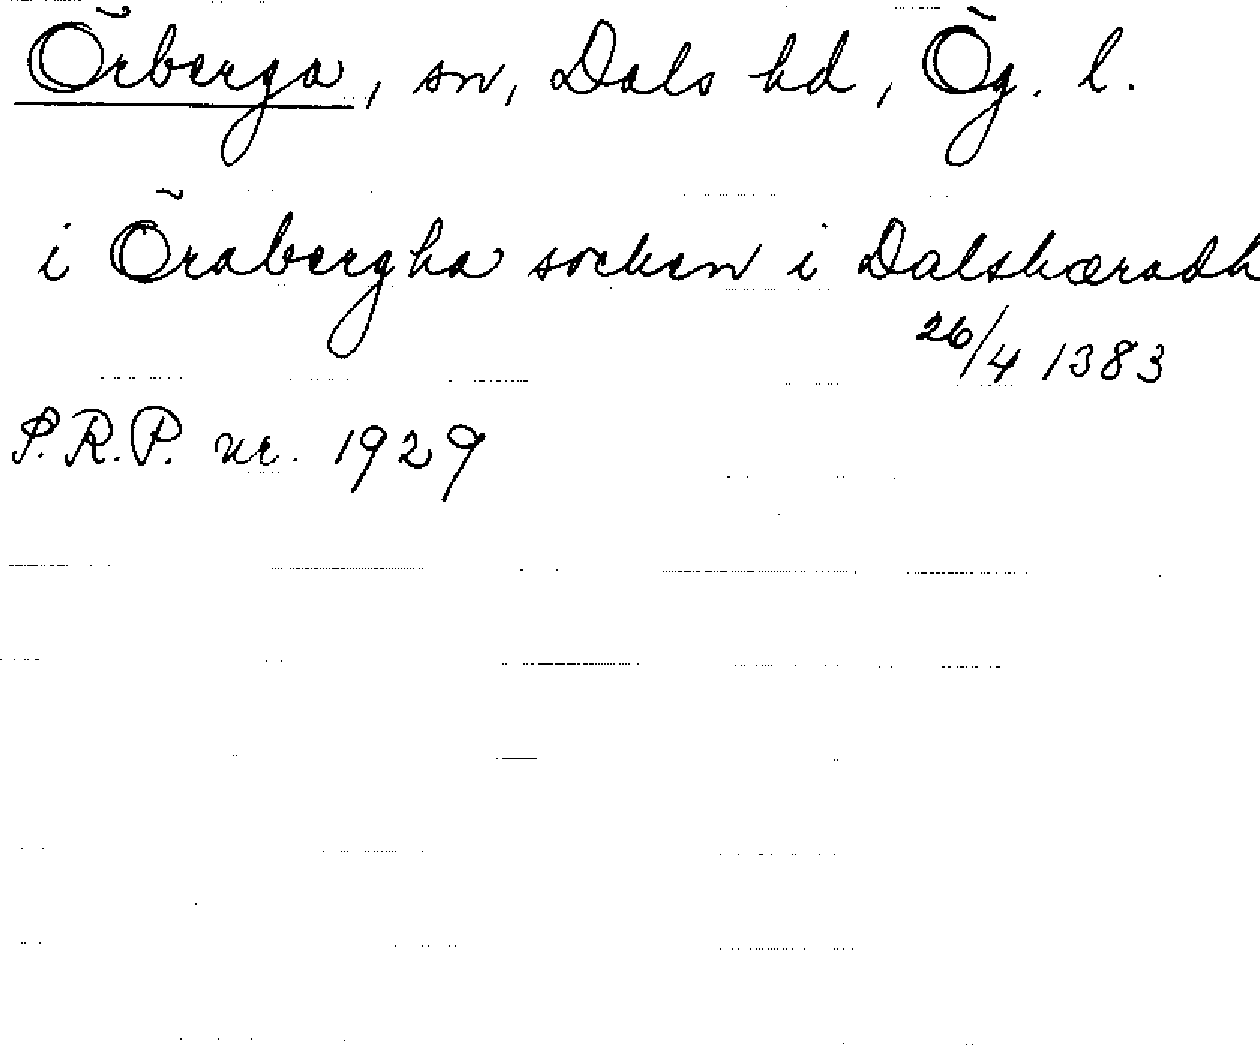 Örberga, sn, Dals hd, Ög. l.
i Örabergha socken i Dalshæradh
26/4 1383
S.R.P. nr. 1929